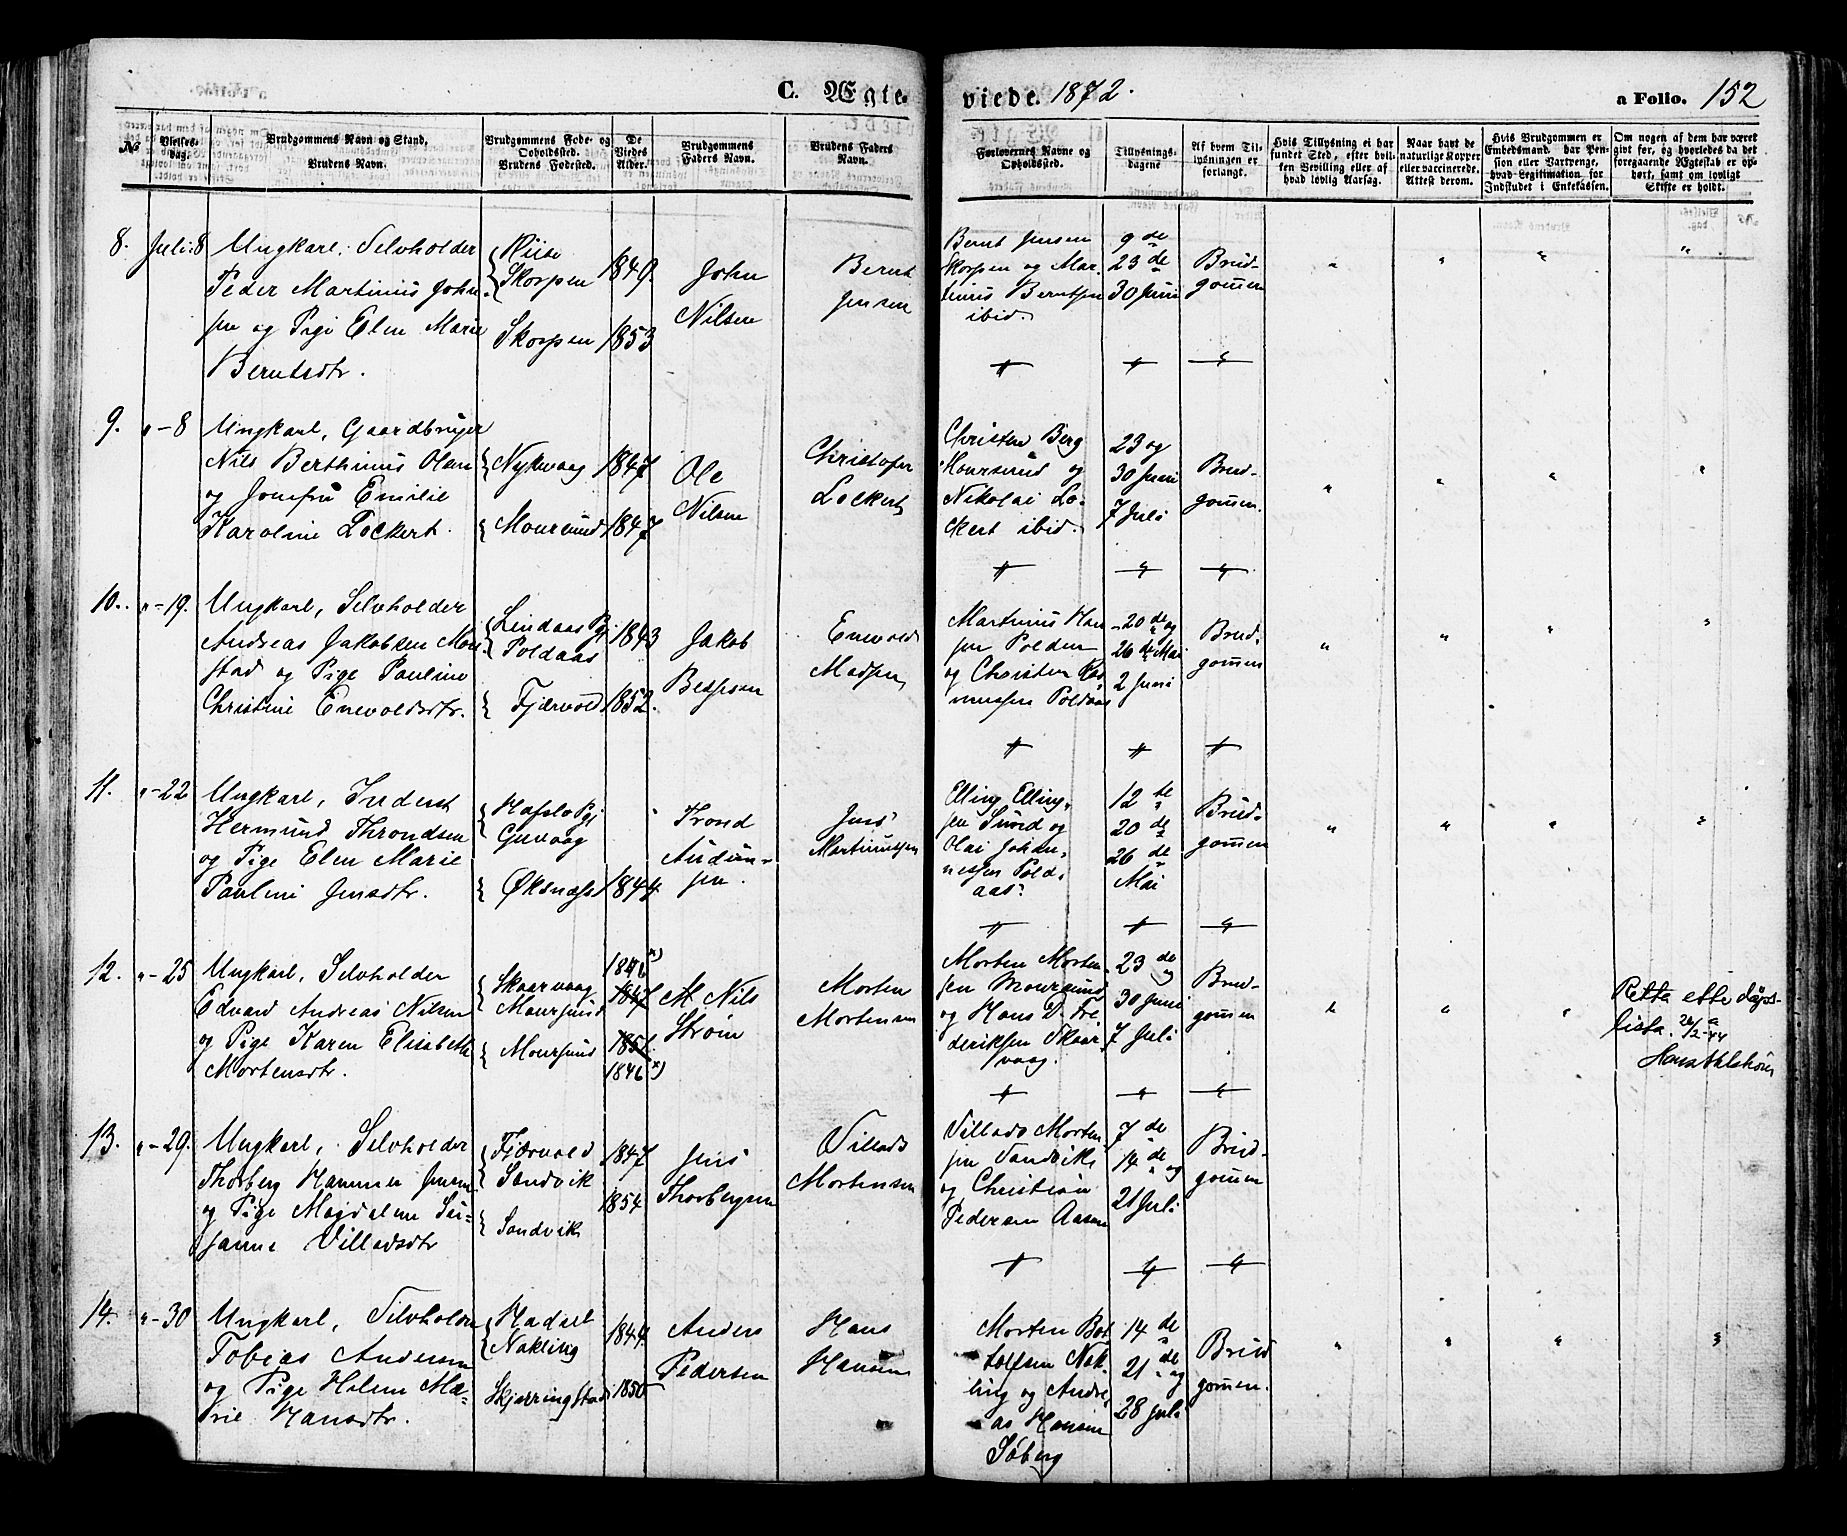 C. Ægte-
viede. 1872.
a Folio. 152
№
Vielses-
dag.
Brudgommens Navn og Stand,
Brudens Navn.
Brudgommens Føde- og
Opholdssted.
Brudens Fødested.
De
Viedes
Alder.
Brudgommens
Faders Navn.
Brudens Faders
Navn.
Forlovernes Navne og
Opholdssted.
Tillysnings-
dagene
Af hvem Til-
lysningen er
forlangt.
Hvis Tillysning ei har
fundet Sted, efter hvil-
ken Bevilling eller af
hvad lovlig Aarsag.
Naar havt de
naturlige Kopper
eller vaccinerede.
Attest derom.
Hvis Brudgommen er
Embedsmand, har Pen-
sion eller Vartpenge,
hvad Legitimation for
Indskudet i Enkekassen.
Om nogen af dem har været
givt før, og hvorledes da det
foregaaende Ægteskab er op-
hørt, samt om lovligt
Skifte er holdt.
8. Juli 8
Ungkarl, Selvholder
Peder Martinius John-
sen og Pige Elen Marie
Berntsdtr.
Riise
Skorpen
Skorpen
1849.
1853
John
Nilsen
Bernt
Jensen
Bernt Jensen
Skorpen og Mar-
tinus Berntsen
ibid.
9de
23de
30 Juni
Brud-
gommen
9. " - 8
Ungkarl, Gaardbruger
Nils Berthinius Olsen
og Jomfru Emilie
Karoline Lockert.
Nykvaag
Moursund
1847
1847
Ole
Nilsen
Christofer
Lockert
Christen Berg
Moursund og
Nikolai Lo-
ckert ibid.
23 og
30 Juni
7 Juli
Brud-
gommen.
10. " - 19.
Ungkarl, Selvholder
Andreas Jakobsen Mon-
stad og Pige Pauline
Christine Enevoldsdtr.
Lindaas Pgj
Poldaas
Fjærvold
1843
1852.
Jakob
Enevold
Madsen
Martinus Han-
sen Polden
og Christen Ras-
mussen Poldaas
20de og
26de Mai
2 Juni
Brud-
gommen
11. " - 22
Ungkarl, Inderst
Hermund Throndsen
og Pige Elen Marie
Pauline Jensdtr.
Hafslo Pgj
Guvaag
Øksnæs
1844.
Trond
Audun-
sen.
Jens
Martinussen
Elling Elling-
sen Sund og
Olai Johan-
nessen Pold-
aas.
12te
20de
26de
Mai
Brud-
gommen
12. " - 25
Ungkarl, Selvholder
Edvard Andreas Nilsen
og Pige Karen Elisabeth
Mortensdtr.
Skaarvaag
Moursund
Moursund
1846 x)
1847
1851.
1846 x)
M Nils
Strøm
Morten
Mortensen
Morten Morten-
sen Moursund
og Hans D. Fre-
deriksen Skaar-
vaag.
23de og
30 Juni
7 Juli
Brud-
gommen
Retta ette dåps-
lista.
13. " - 29.
Ungkarl, Selvholder
Thorberg Hammer Jensen
og Pige Magdalene Su-
sanne Villadsdtr
Fjærvold
Sandvik
Sandvik
1847
1854
Jens
Thorbergsen
Villads
Mortensen
Villads Morten-
sen Sandvik
og Christian
Pedersen Aasen
7de
14de og
21 Juli
Brud-
gommen
14. " - 30
Ungkarl, Selvholder
Tobias Andersen
og Pige Helene Ma-
rie Hansdtr.
Hadsel
Nakling
Skjerringstad
1844.
1850
Anders
Pedersen
Hans
Hansen
Morten Bot-
tolfsen Nak-
ling og Andre-
as Hansen
Søberg
14de
21de og
28 Juli
Brud
gommen.